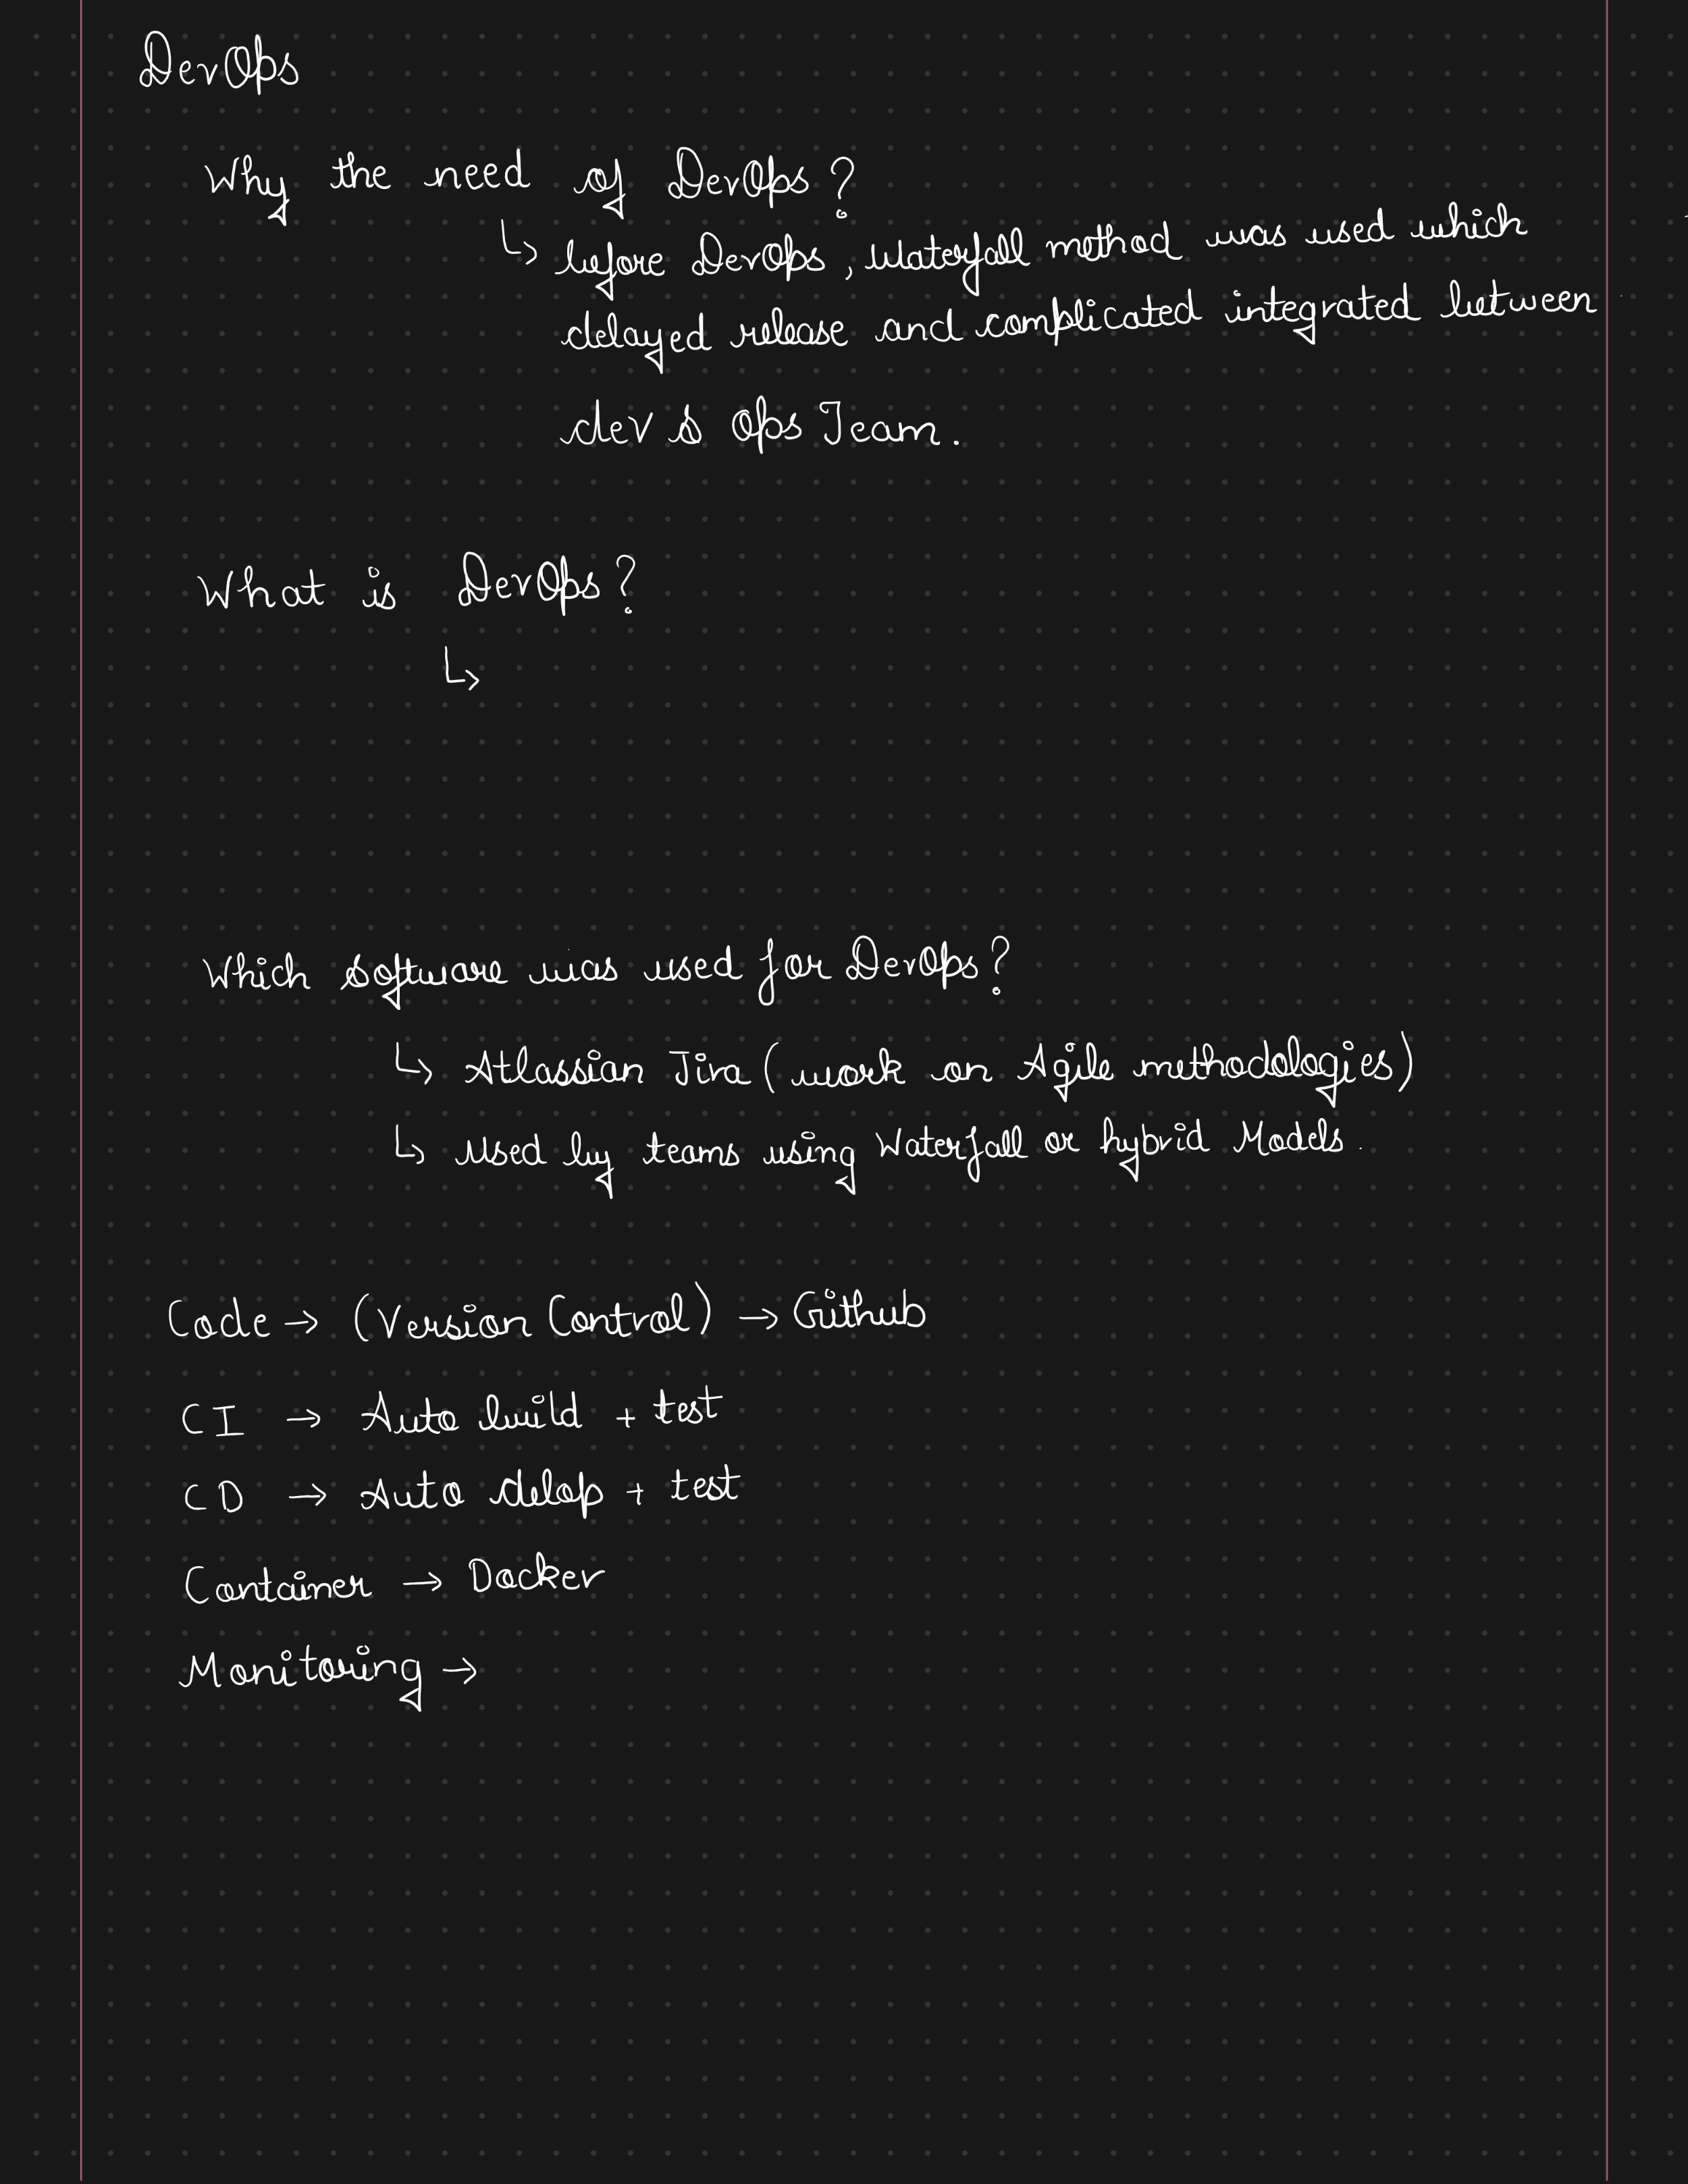 DevOps
Why the need of DevOps?
↳ before DevOps, Waterfall method was used which
delayed release and complicated integrated between
dev & Ops Team.
What is DevOps?
↳
Which software was used for DevOps?
↳ Atlassian Jira (work on Agile methodologies)
↳ Used by teams using Waterfall or hybrid Models.
Code → (Version Control) → Github
CI → Auto build + test
CD → Auto delop + test
Container → Docker
Monitoring →